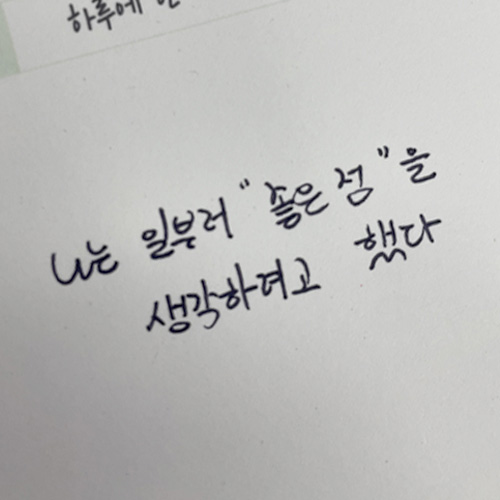 하루에
나는 일부러 "좋은 점"을
생각하려고 했다